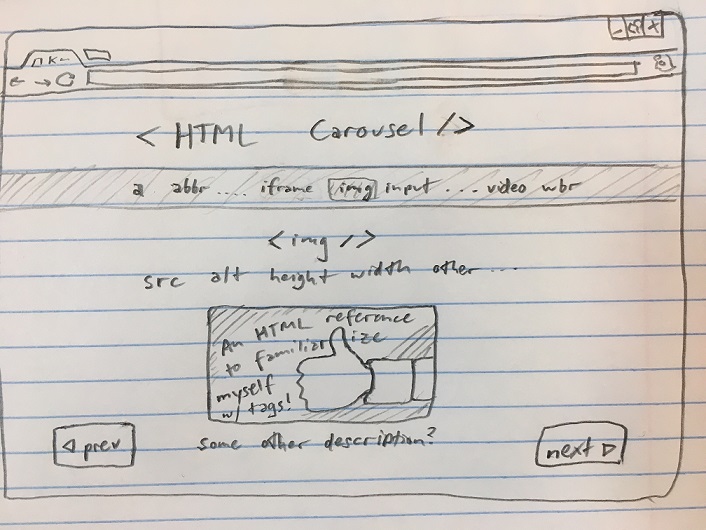 < HTML Carousel />
a abbr .... iframe img input ... video wbr
<img />
src alt height width other ...
An HTML reference
to familiarize
myself
w/ tags!
some other description?
◁ prev
next ▷